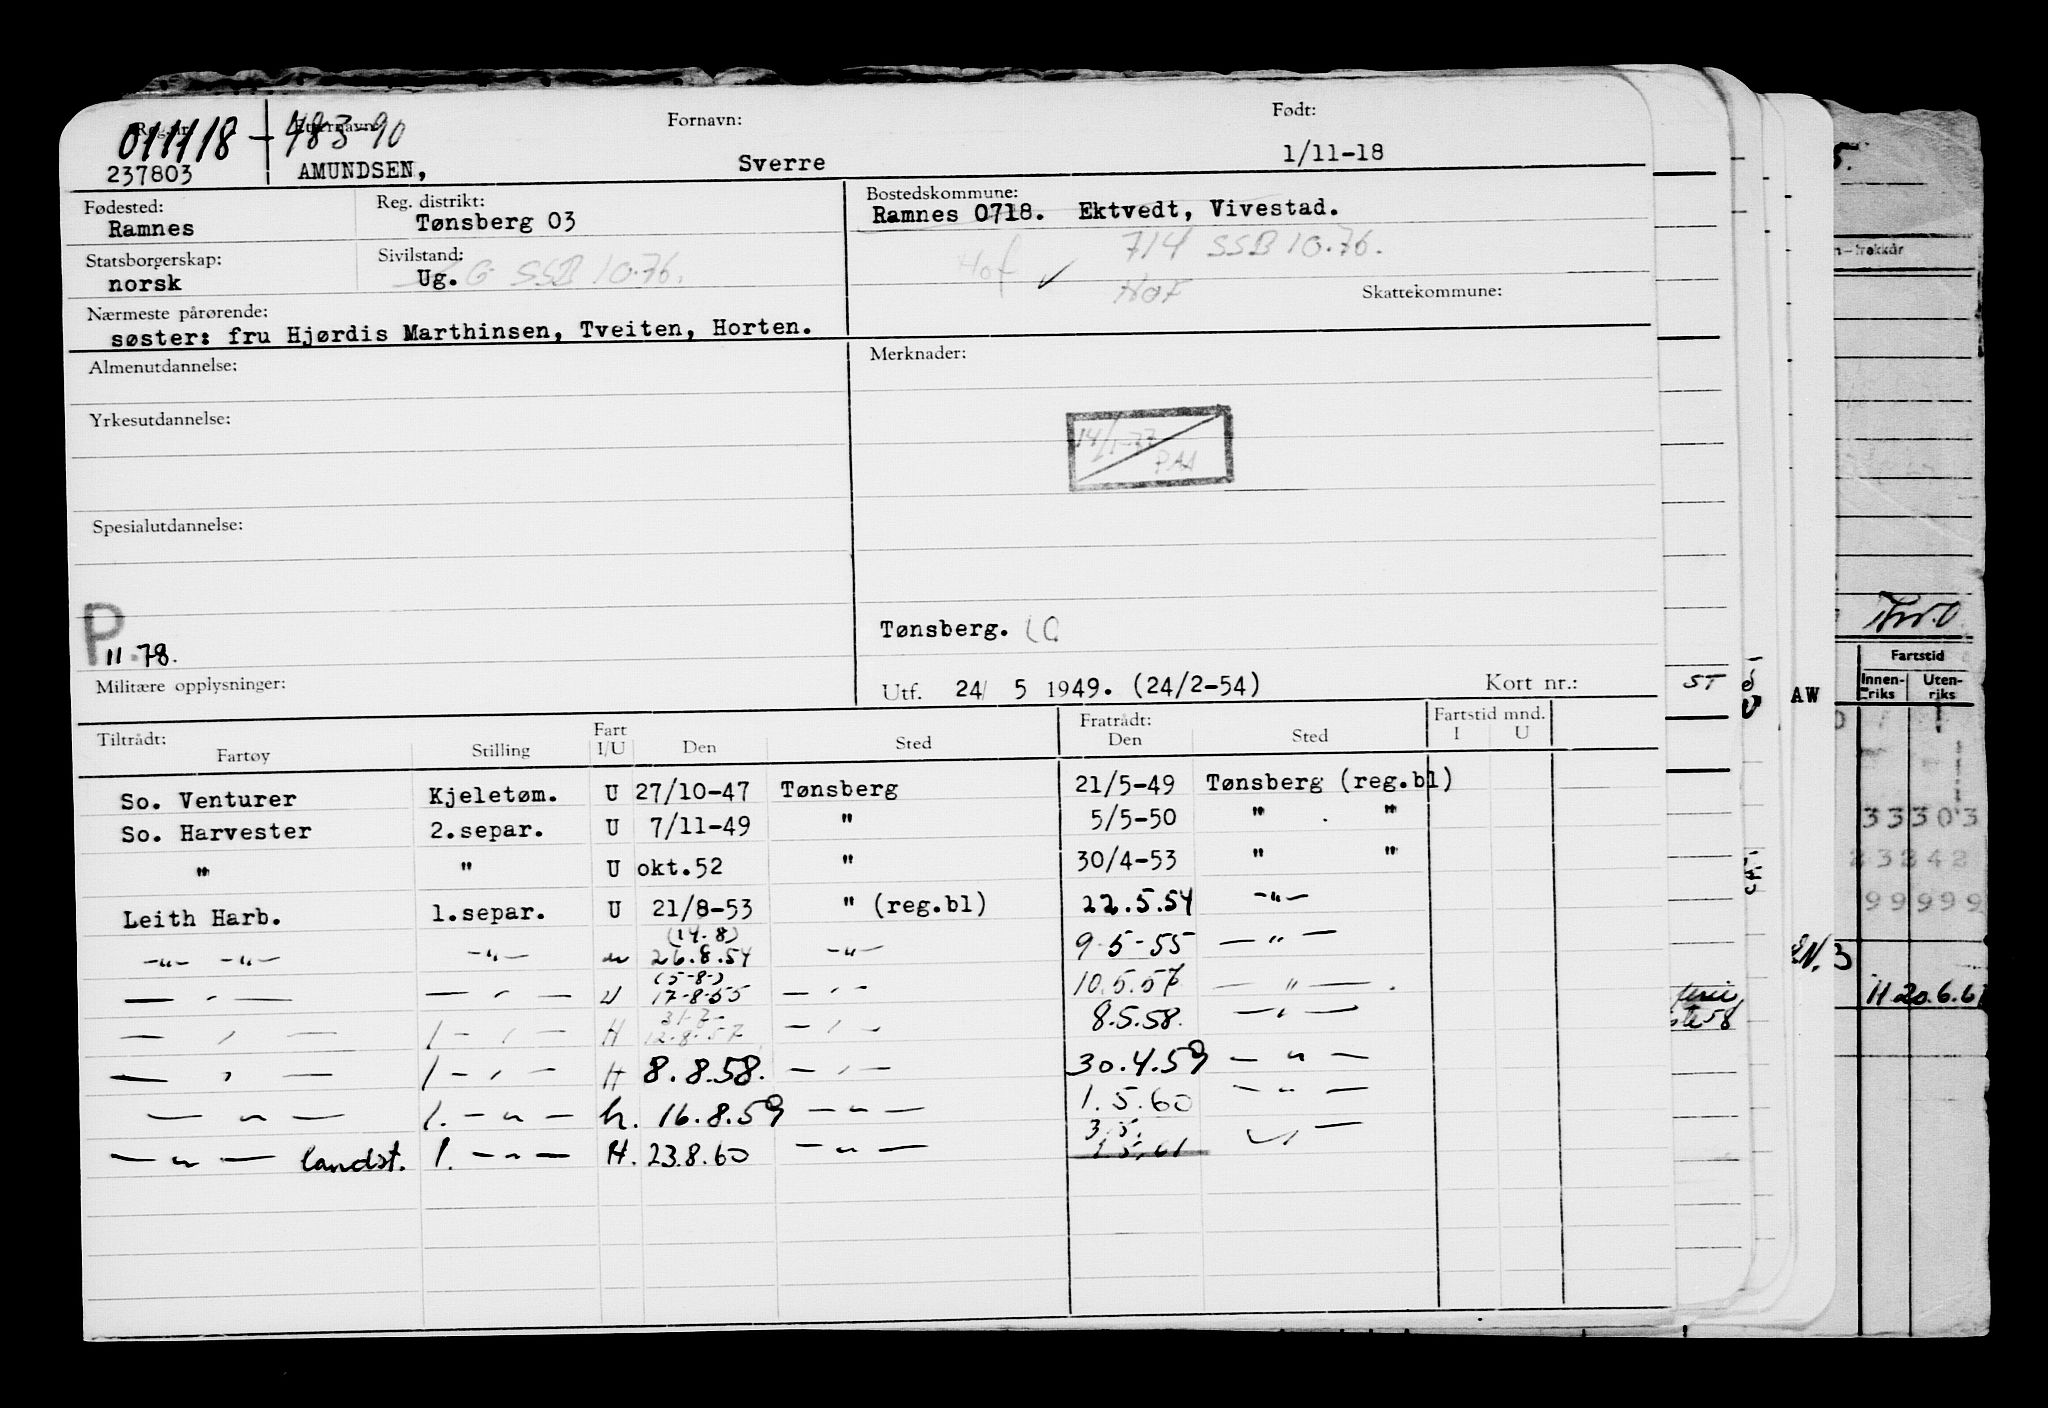 Fornavn: Født:
011118 - 48390
237803 AMUNDSEN, Sverre 1/11-18
Fødested: Reg. distrikt: Bostedskommune:
Ramnes Tønsberg 03 Ramnes 0718. Ektvedt, Vivestad.
Hof 714 SSB 10.76.
Statsborgerskap: Sivilstand:
norsk Ug. G SSB 10.76. Hof Skattekommune:
Nærmeste pårørende:
søster: fru Hjørdis Marthinsen, Tveiten, Horten.
Almenutdannelse: Merknader:
Yrkesutdannelse:
14/1-77
PAA
Spesialutdannelse:
P Tønsberg.
11.78.
Militære opplysninger: Utf. 24/ 5 1949. (24/2-54) Kort nr.:
Tiltrådt: Fart Fratrådt: Fartstid mnd.
Fartøy Stilling I/U Den Sted Den Sted I U
So. Venturer Kjeletøm. U 27/10-47 Tønsberg 21/5-49 Tønsberg (reg.bl)
So. Harvester 2.separ. U 7/11-49 " 5/5-50 " "
" " U okt.52 " 30/4-53 " "
Leith Harb. 1.separ. U 21/8-53 " (reg.bl) 22.5.54 -"-
(14-8)
-"- -"- -"- u 26.8.54 -"- 9-5-55 -"-
(5-8-)
-"- -"- U 17-8-55 -"- 10.5.57 -"-
31-7-
-"- 1-"- H 12.8.57 -"- 8.5.58. -"-
-"- 1-"- H 8.8.58. -"- 30.4.59 -"-
-"- 1.-"- h. 16.8.59 -"- 1.5.60 -"-
3.5.
-"- landst. 1.-"- H. 23.8.60 -"- 1.5.61 -"-
5.
Fartstid
Innenriks Utenriks
ST
AW
33303
99999
11.20.6.61